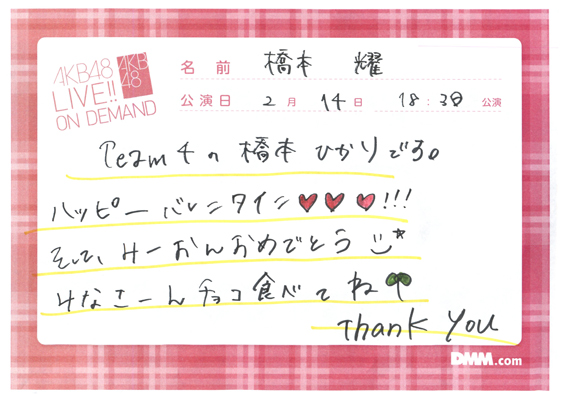 AKB48
LIVE!!
ON DEMAND
AKB
48
名前 橋本 耀
公演日 2月 14日 18:30 公演
Team 4の 橋本 ひかりでる。
ハッピー バレンタイン♥♥♥!!!
そして、みーおんおめでとう
みなさーんチョコ食べてね
Thank You
DMM.com